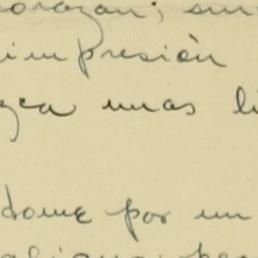 corazon; sin
impresión
zca unas li
dome por un